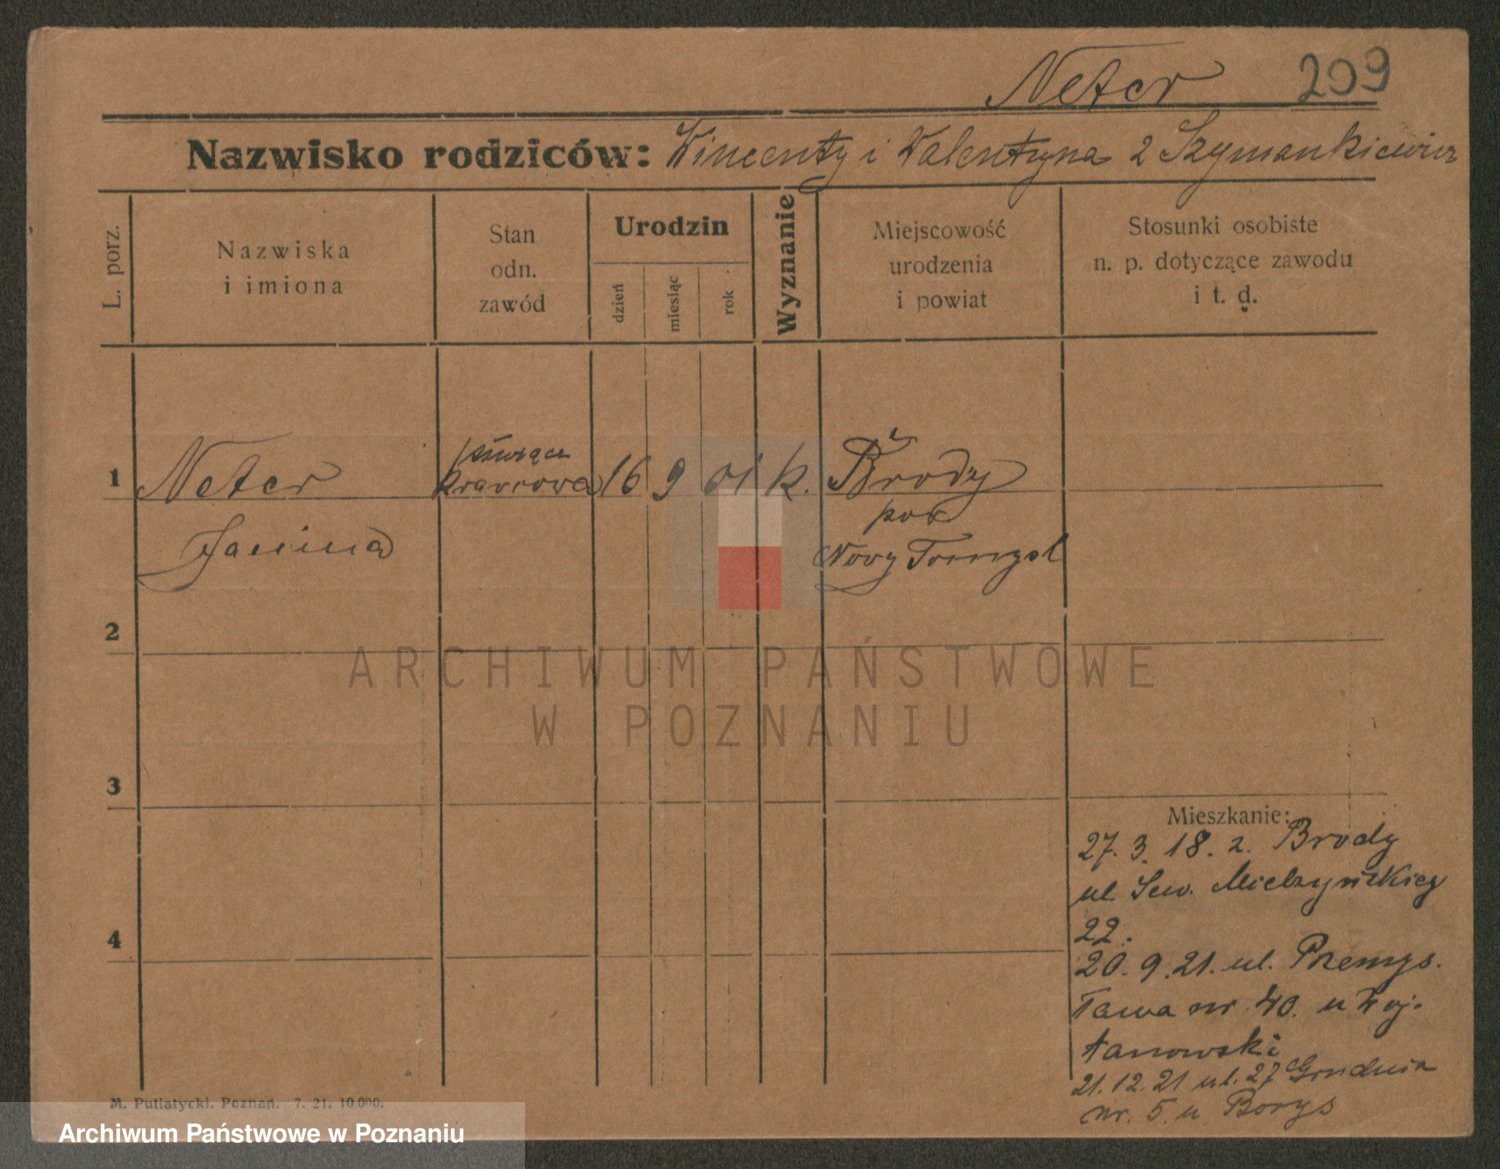 Neter 209
Nazwisko rodziców: Wincenty i Walentyna z Szymankiewicz
L. porz.
Nazwiska
i imiona
Stan
odn.
zawód
Urodzin
dzień
miesiąc
rok
Wyznanie
Miejscowość
urodzenia
i powiat
Stosunki osobiste
n. p. dotyczące zawodu
i t. d.
1 Neter krawcowa 16 9 01 k. Brody
Janina pow
Nowy Tomysl
2
ARCHIWUM PAŃSTWOWE
W POZNANIU
3
Mieszkanie:
27. 3. 18. z. Brody
ul Sew. Mielzyńskieg
22.
4
20. 9. 21. ul. Przemys.
ława nr. 40. u Woj-
tanowski
21. 12. 21 ul. 27 Grudnia
nr. 5. u Borys
M. Putiatycki. Poznań. 7. 21. 10.000.
Archiwum Państwowe w Poznaniu